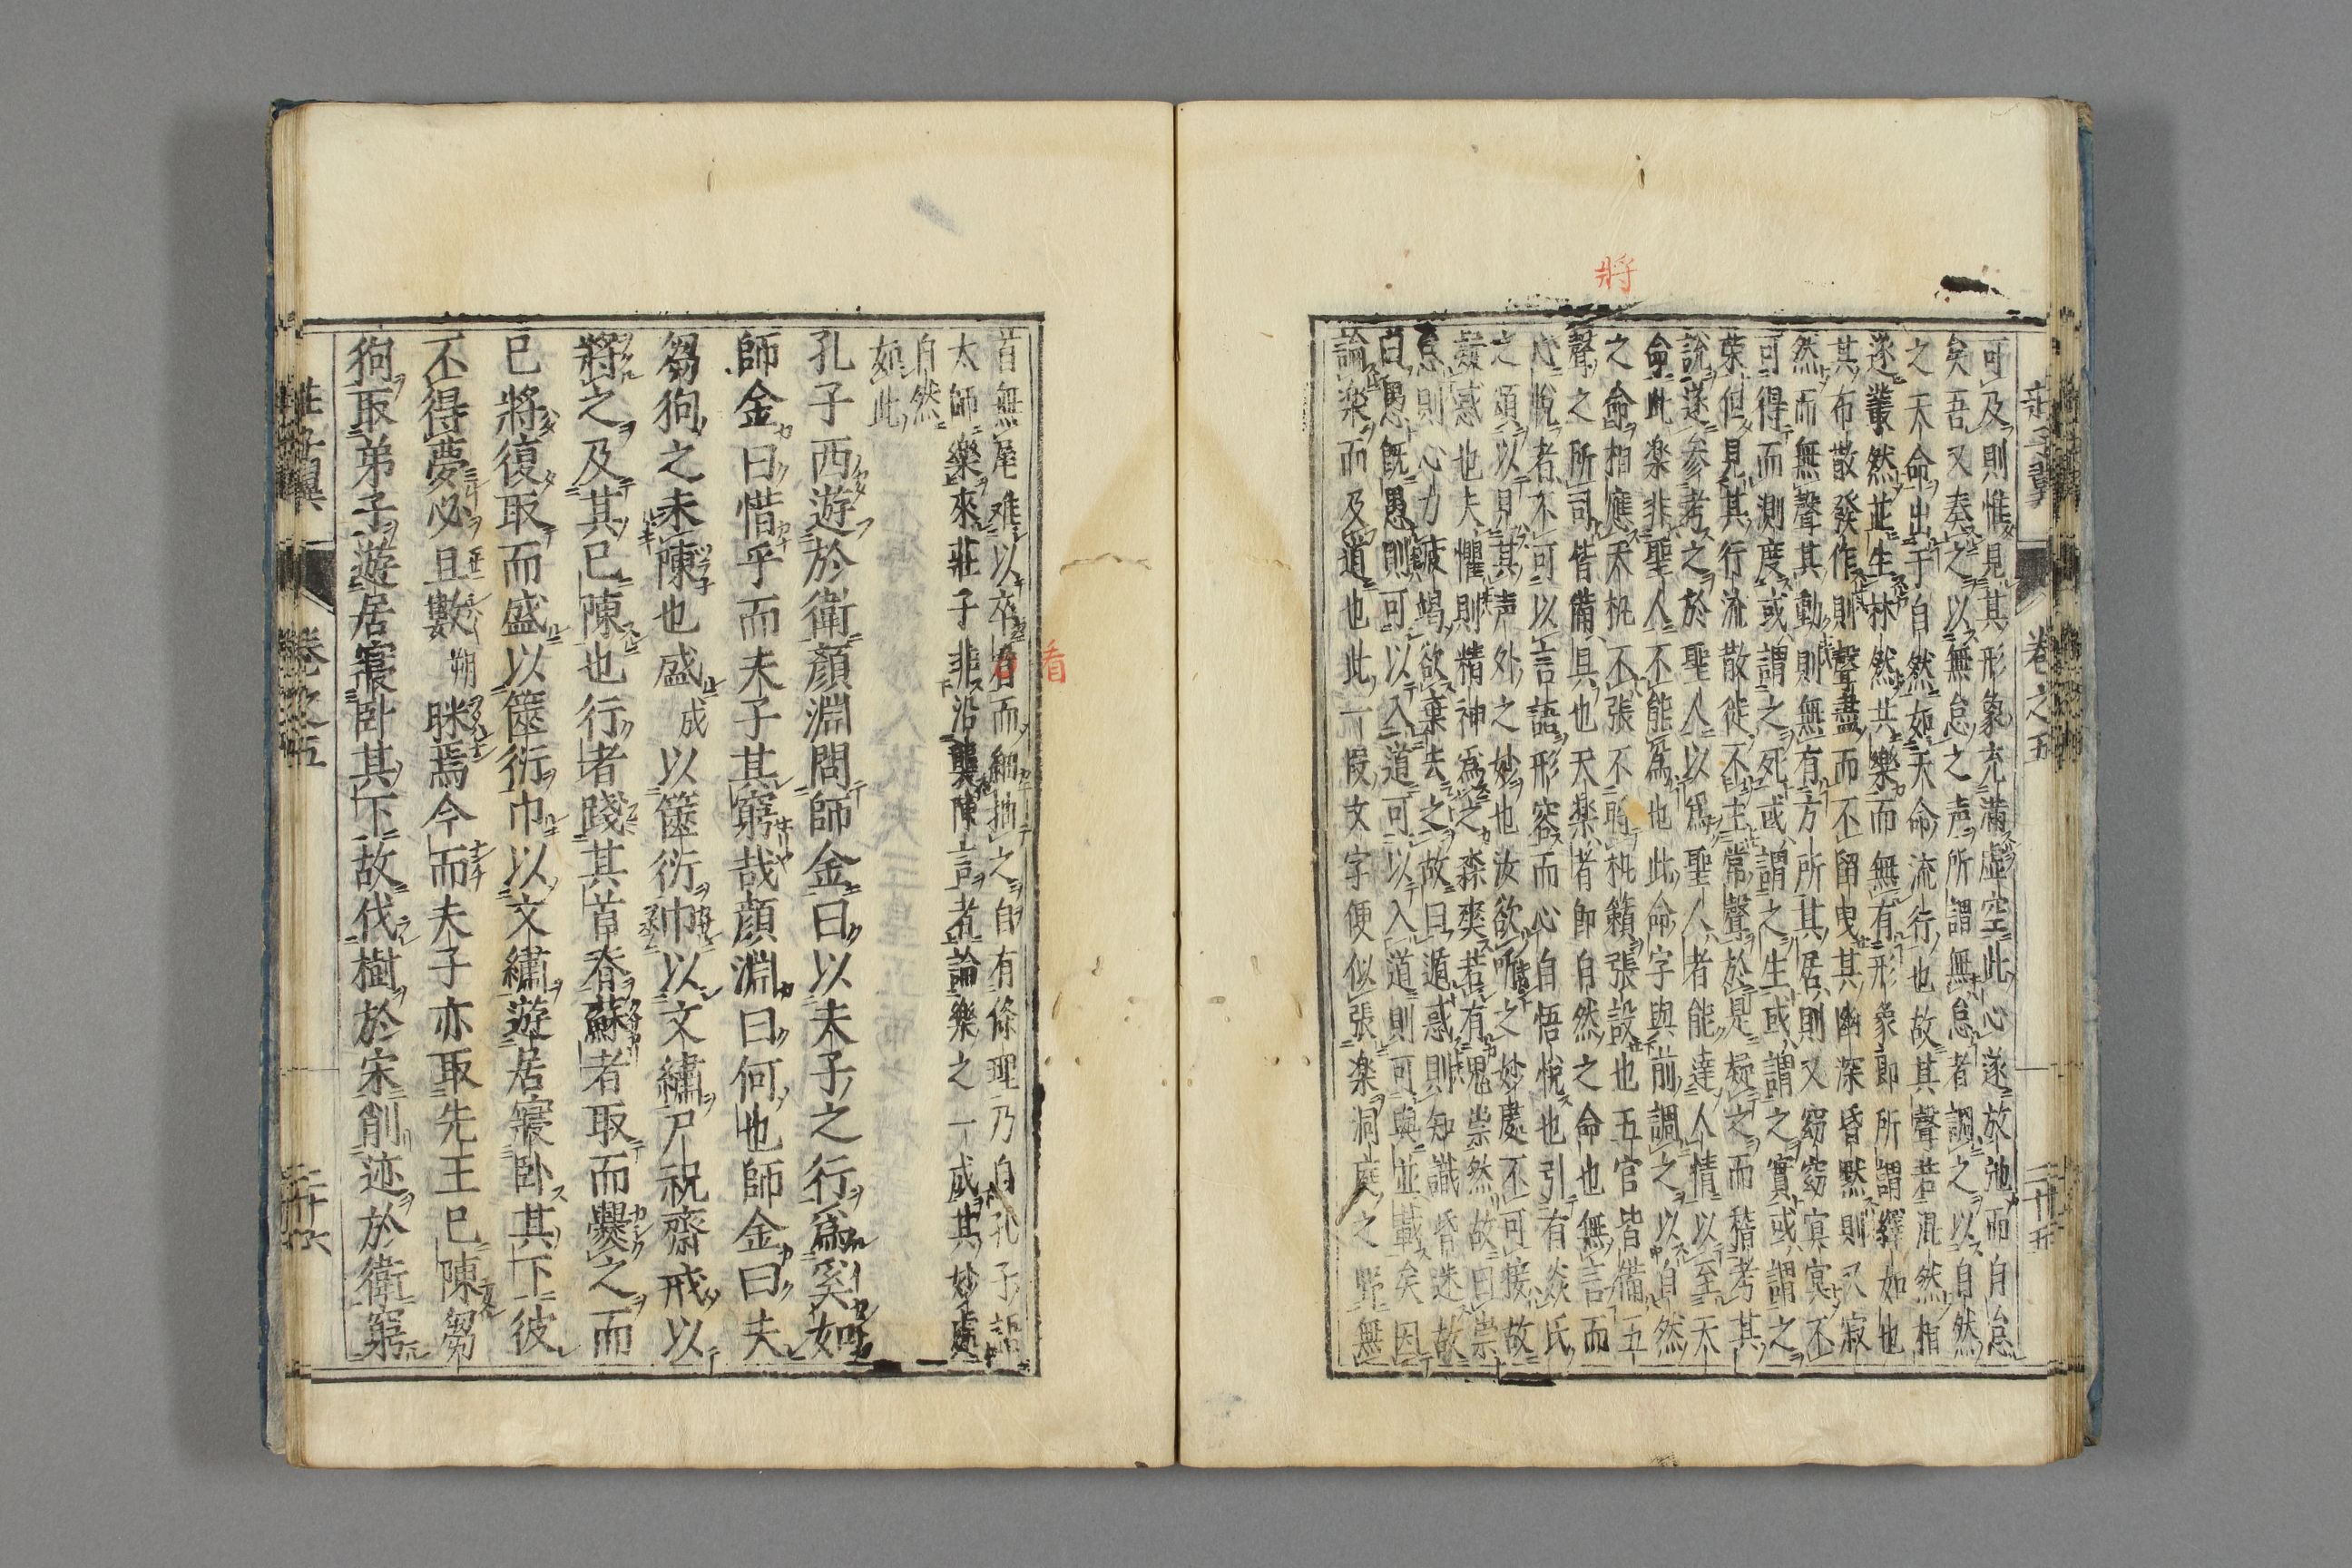 將
莊子翼 卷之五 二十五
可及則惟見其形象充滿虛空此心遂放弛而自怠
矣吾又奏之以無怠之声所謂無怠者調之以自然
之天命出于自然如天命流行也故其聲若混然相
逐叢然並生林然共樂而無有形象即所謂繹如也
其布散發作則聲盡而不留曳其幽深昏默則又寂
然而無聲其動則無有方所其居則又窈窈冥冥不
可得而測度或謂之死或謂之生或謂之實或謂之
荣但見其行流散徙不主常聲於是疑之而稽考其
說遂参考之於聖人以為聖人者能達人情以至天
命此楽非聖人不能為也此命字與前調之以自然
之命相應天机不張不啲机籟張設也五官皆備五
聲之所司皆備具也天楽者即自然之命也無言而
心悅者不可以言語形容而心自悟悅也引有焱氏
之頌以見其声外之妙也汝欲听之妙處不可接故
疑惑也夫懼則精神為之森爽若有鬼祟然故曰祟
怠則心力疲竭欲棄去之故曰遁惑則知識昏迷故
曰愚既愚則可以入道可以入道則可與並載矣因
論楽而及道也此一假文字便似張楽洞庭之野無
首無尾难以卒看而細抽之自有條理乃自孔子語
看
太師樂來莊子非沿襲陳言者論樂之一成其妙處
自然
如此
孔子西遊於衛顏淵問師金曰以夫子之行為奚如
師金曰惜乎而夫子其窮哉顏淵曰何也師金曰夫
芻狗之未陳也盛成以篋衍巾以文繡尸祝齋戒以
將之及其已陳也行者踐其首脊蘇者取而爨之而
已將復取而盛以篋衍巾以文繡遊居寢卧其下彼
不得夢必且數朔眯焉今而夫子亦取先王已陳芻
狗取弟子遊居寢卧其下故伐樹於宋削迹於衛窮
莊子翼 卷之五 二十六